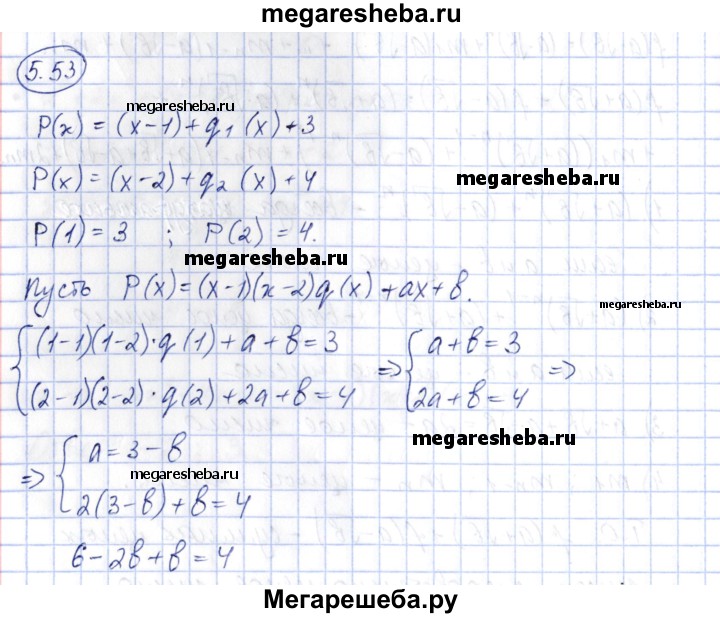 megaresheba.ru
5.53
megaresheba.ru
P(x) = (x-1) + q₁ (x) + 3
P(x) = (x-2) + q₂ (x) + 4
megaresheba.ru
P(1) = 3 ; P(2) = 4.
megaresheba.ru
пусть P(x) = (x-1)(x-2)q(x) + ax + b.
megaresheba.ru
{(1-1)(1-2)·q(1) + a + b = 3 => {a + b = 3 =>
(2-1)(2-2)·q(2) + 2a + b = 4 2a + b = 4
megaresheba.ru
=> {a = 3 - b
megaresheba.ru
2(3-b) + b = 4
6 - 2b + b = 4
Мегарешеба.ру